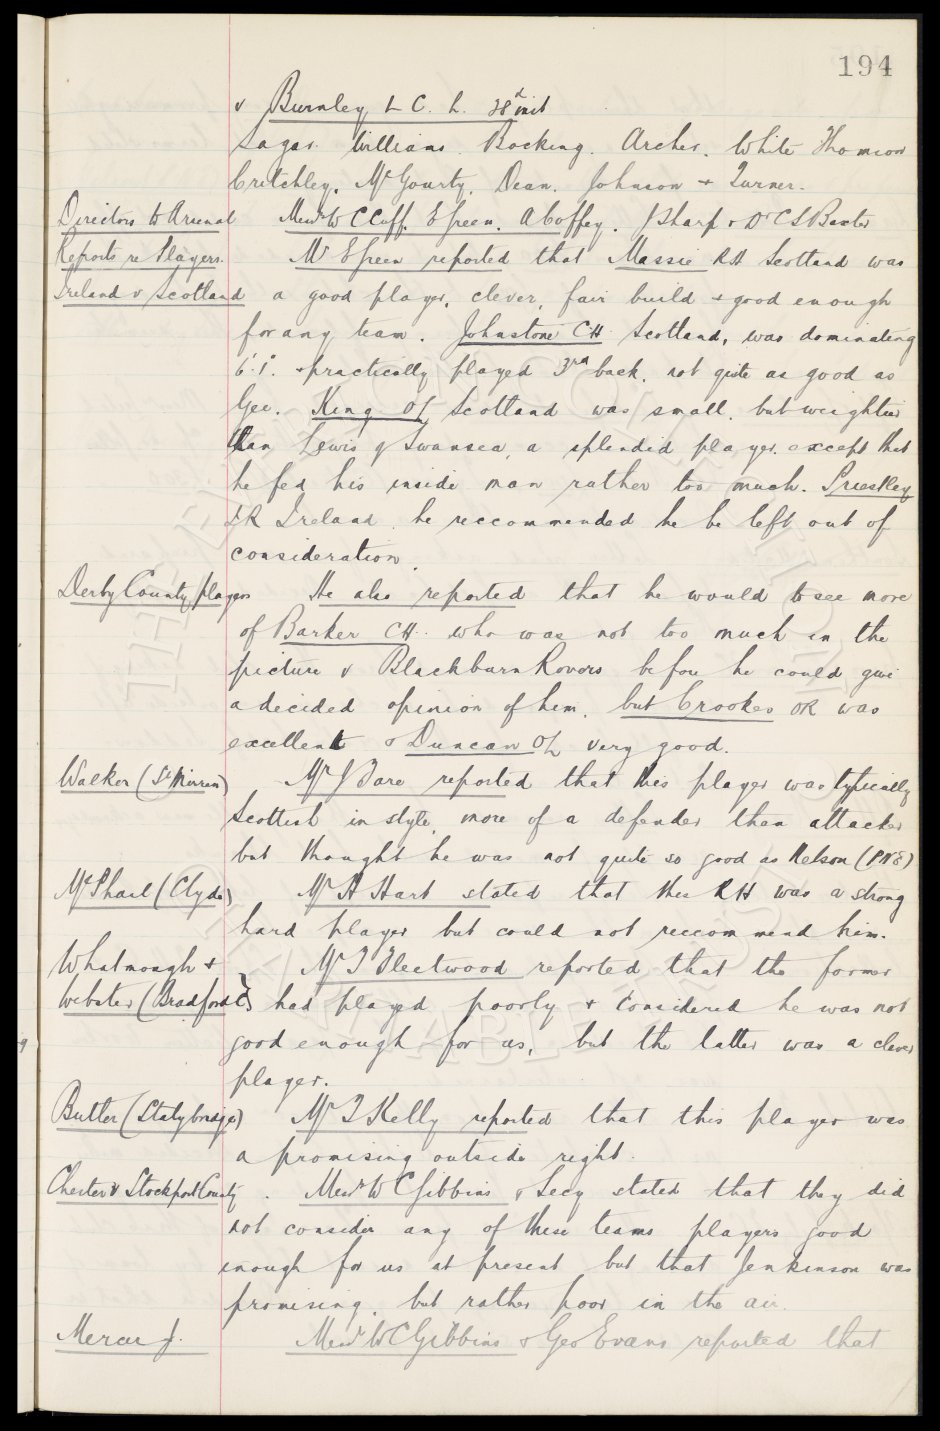 194
v Burnley L C. L. 28th inst
Sagar. Williams. Bocking. Archer. White Thomson
Critchley. McGourty. Dean. Johnson + Turner.
Directors to Arsenal Messrs W C Cuff. E Green. A Coffey. J Sharp + Dr C S Baxter
Reports re Players. Mr E Green reported that Massie RH Scotland was
Ireland v Scotland a good player, clever, fair build + good enough
for any team. Johnstone CH Scotland, was dominating
6'.1". + practically played 3rd back. not quite as good as
Gee. King OL Scotland was small, but weightier
than Lewis of Swansea, a splendid player except that
he fed his inside man rather too much. Priestley
IR Ireland, he reccommended he be left out of
consideration.
Derby County players He also reported that he would to see more
of Barker CH. who was not too much in the
picture v Blackburn Rovers before he could give
a decided opinion of him, but Crookes OR was
excellent + Duncan OL very good.
Walker (St Mirren) Mr J Dare reported that this player was typically
Scottish in style, more of a defender than attacker
but thought he was not quite so good as Nelson (PNE)
McPhail (Clyde) Mr A Hart stated that this RH was a strong
hard player but could not reccommend him.
Whatmough + Mr T Fleetwood reported that the former
Webster (Bradford C) had played poorly + considered he was not
good enough for us, but the latter was a clever
player.
Butler (Stalybridge) Mr T Kelly reported that this player was
a promising outside right.
Chester v Stockport County. Messrs W C Gibbins + Secy stated that they did
not consider any of these teams players good
enough for us at present but that Jenkinson was
promising, but rather poor in the air.
Mercer J. Messrs W C Gibbins + Geo Evans reported that